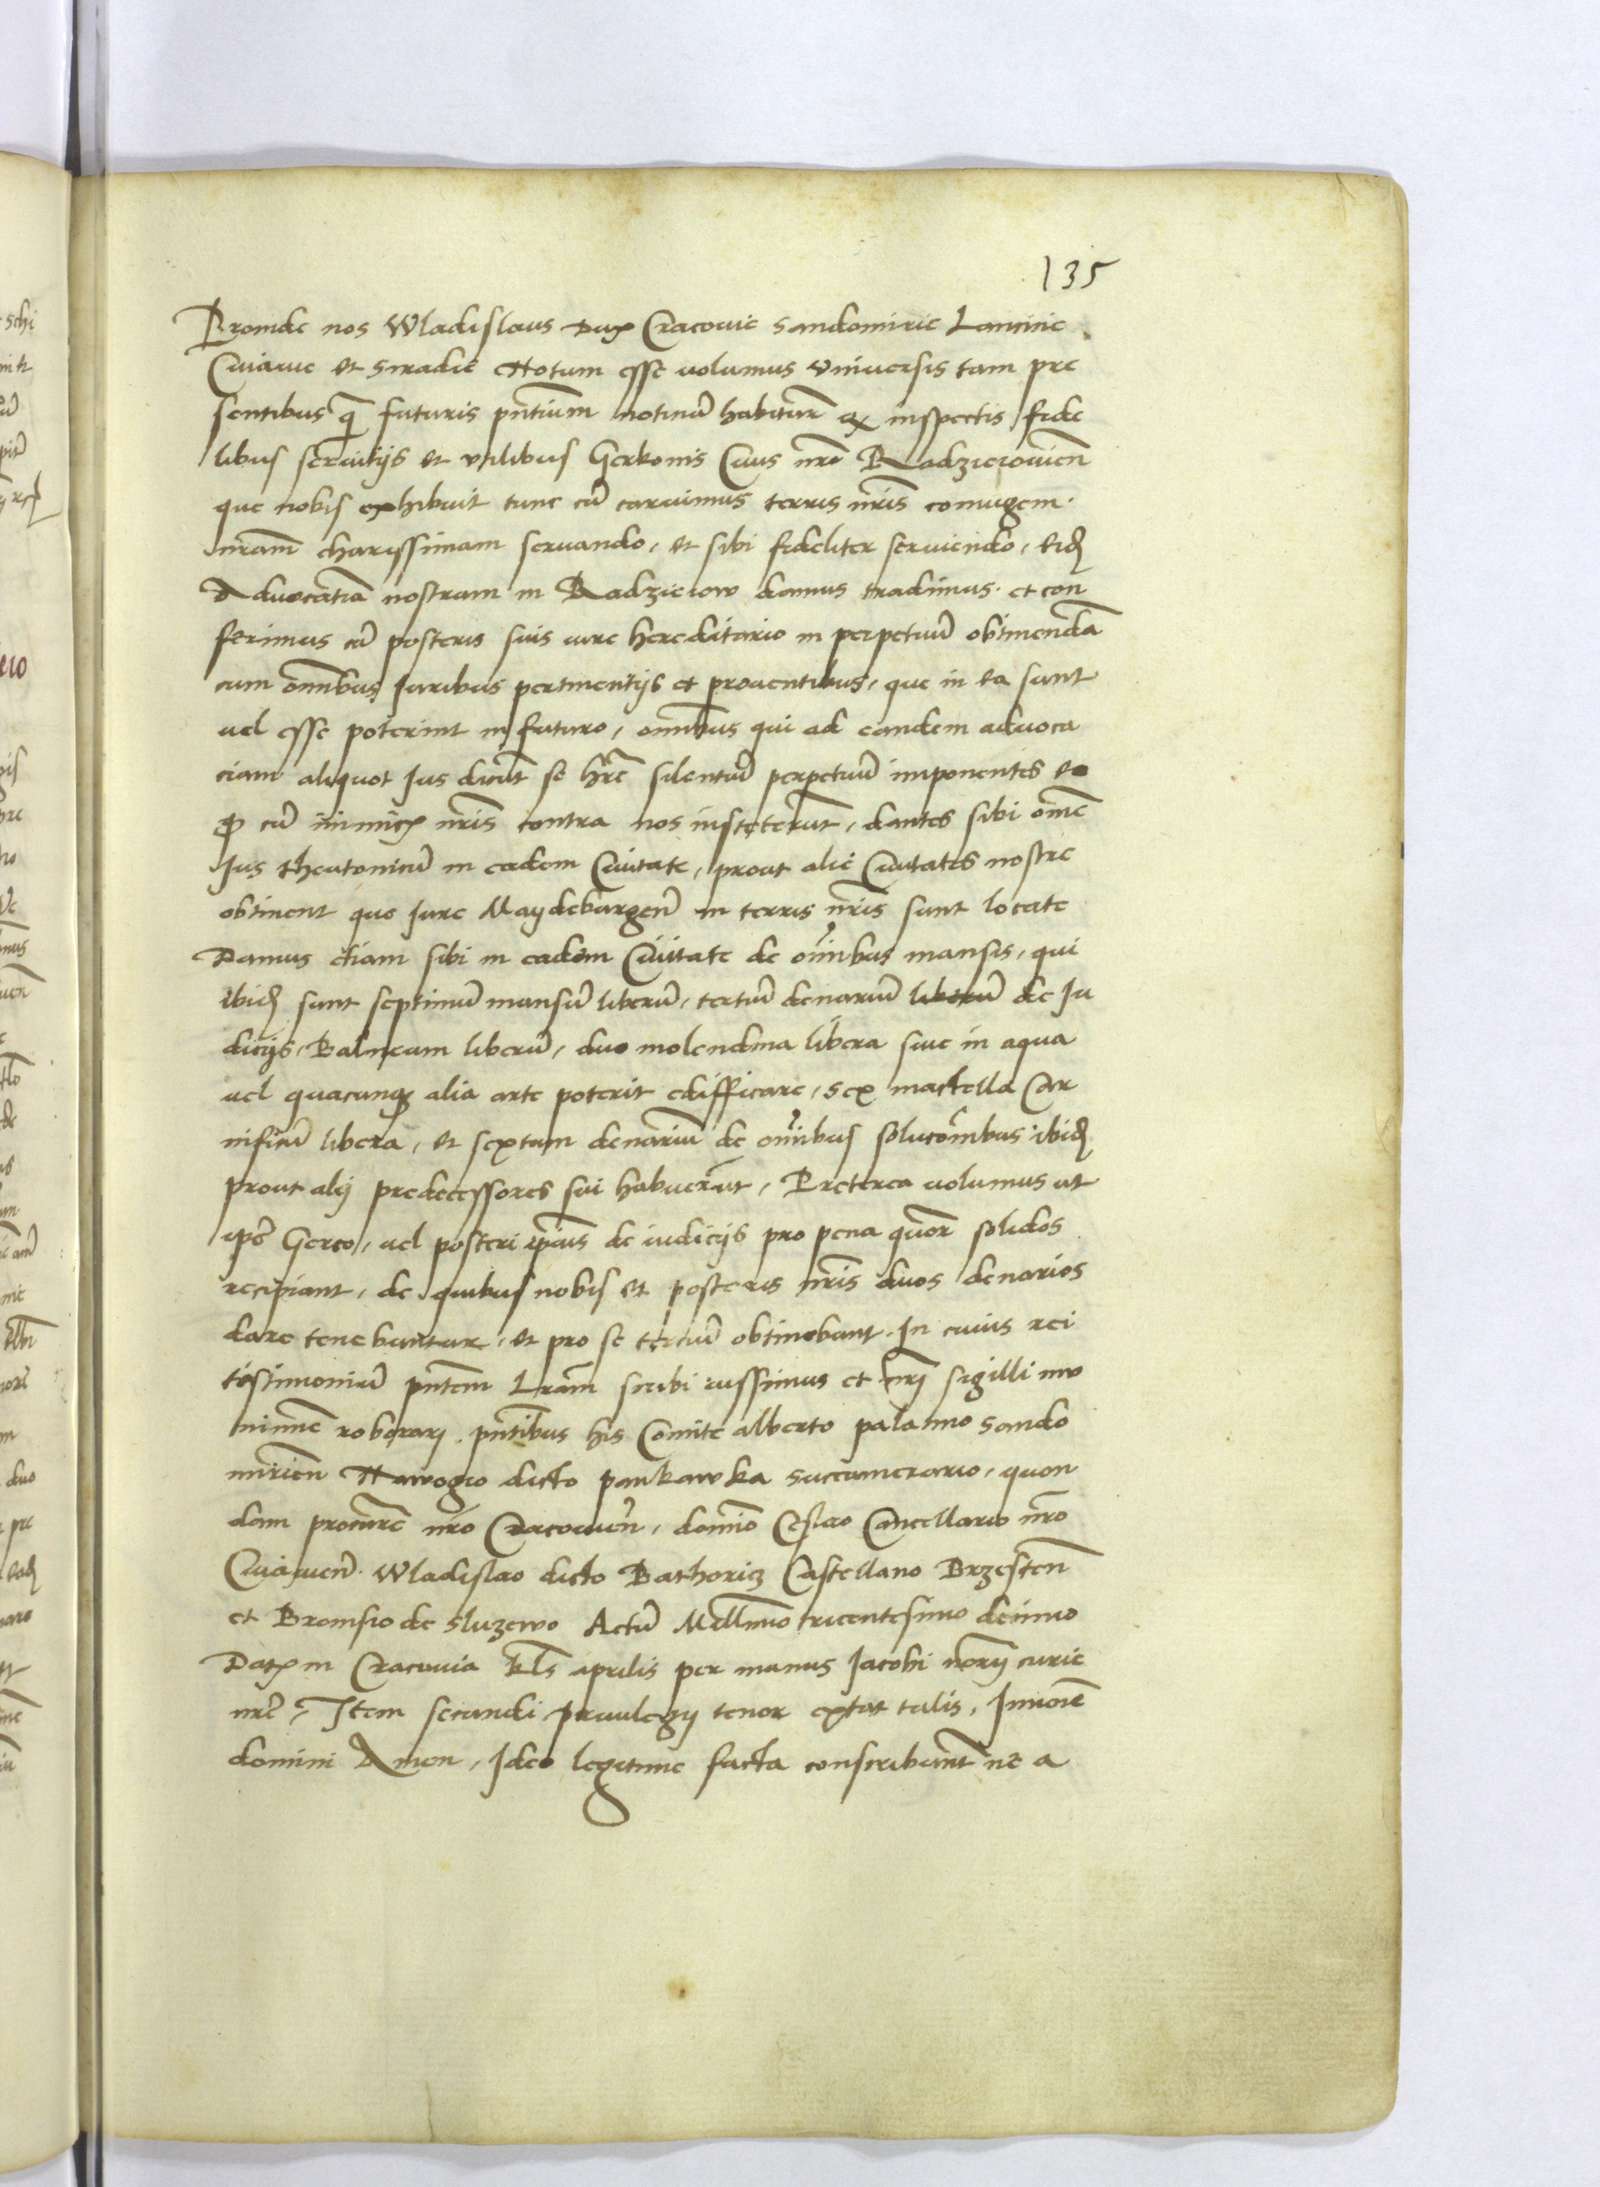 135
Proinde nos Wladislaus Dux Cracovie Sandomirie Lancicie
Cuiavie et Siradie Notum esse volumus Universis tam pre
sentibus q̃ futuris pñtium notitiã habiturẽ qꝫ inspectis fide
libus servitijs et utilibus Gerkonis Civis nr̃i Radzieiovieñ
que nobis exhibuit tunc cũ caruimus terris nr̃is coniugem
nr̃am charissimam servando, et sibi fideliter serviendo, eidẽ
Advocatiã nostram in Radzieiow damus tradimus et con
ferimus cũ posteris suis iure hereditario in perpetuũ obtinendã
cum omñibus Juribus pertinentijs et proventibus, que in ea sunt
vel esse poterint in futuro, omñibus qui ad eandem advoca
ciam aliquot Jus dicũt se hr̃e silentiũ perpetuũ imponentes eo
ꝙ cũ inimicꝫ nr̃is contra nos insteterũt, dantes sibi om̃e
Jus theutonicũ in eadem Civitate, prout alie Civitates nostre
obtinent que Jure Maydeburgeñ in terris nr̃is sunt locate
Damus etiam sibi in eadem Civitate de om̃ibus mansis, qui
ibidẽ sunt septimũ mansũ liberũ, tertiũ denariũ liberũ de Ju
dicijs, Balneum liberũ, duo molendina libera sive in aqua
vel quacunqꝫ alia arte poterit edifficare, sex mactella Car
nificũ libera, et sextam denariũ de om̃ibus soluc̃oibus ibidẽ
prout alij predecessores sui habuerũt, Preterea volumus ut
ip̃e Gerco, vel posteri ip̃ius de iudicijs pro pena quor̃ solidos
recipiant, de quibus nobis et posteris nr̃is duos denarios
dare tenebuntur, et pro se tertiũ obtinebunt. In cuius rei
testimoniũ pñtem Lr̃am scribi iussimus et nr̃j sigilli mu
nimine roborarj pñtibus his Comite alberto palatino Sando
mirieñ Nawogio dicto pankawka Succamerario, quon
dam procurr̃e nr̃o Cracovieñ, domino Ceslao Cancellario nr̃o
Cuiavieñ Wladislao dicto Bathoricz Castellano Brzesteñ
et Bronisio de Sluzewo Actũ Millmo tricentesimo decimo
Datꝫ in Cracovia Kl̃s aprilis per manus Jacobi nor̃ij curie
nr̃e, Item secundi privilegij tenor extat talis, In noie
domini Amen, Ideo legitime facta conscribunt̃ ne a